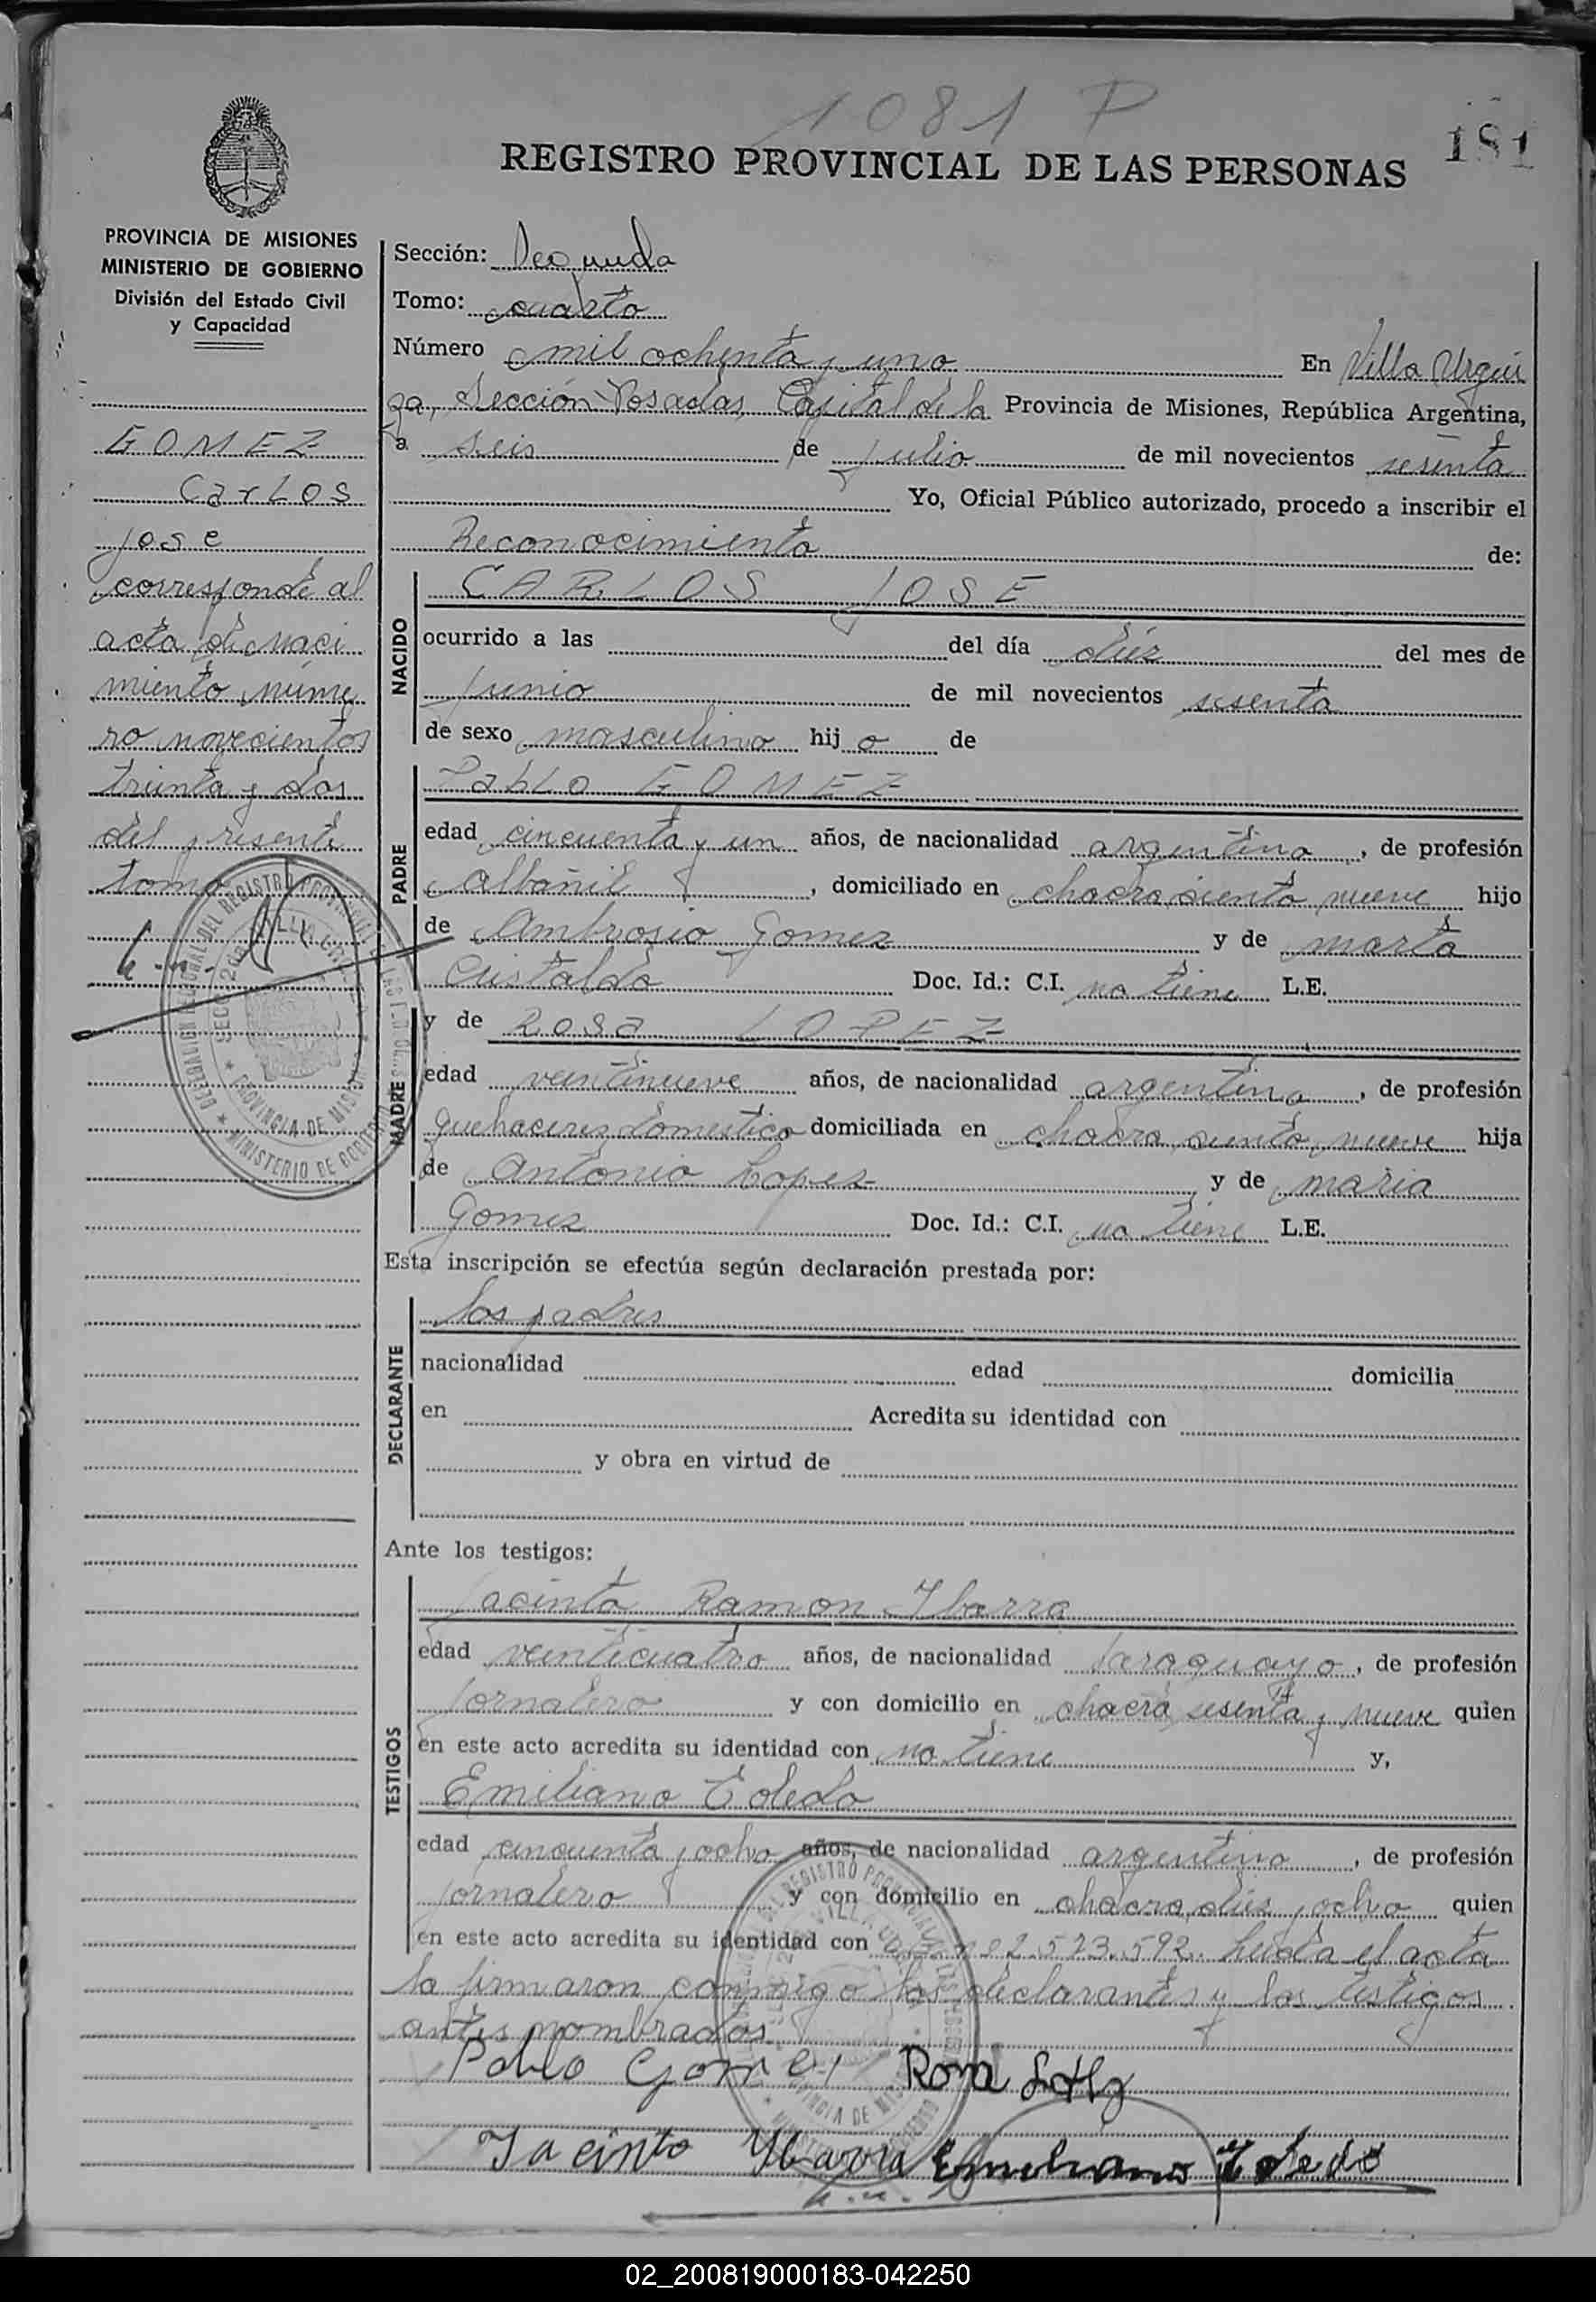 1081 P
181
REGISTRO PROVINCIAL DE LAS PERSONAS
PROVINCIA DE MISIONES
MINISTERIO DE GOBIERNO
División del Estado Civil
y Capacidad
GOMEZ
Carlos
Jose
corresponde al
acta de naci
miento núme
ro novecientos
treinta y dos
del presente
tomo
Sección: Segunda
Tomo: cuarto
Número mil ochenta y uno En Villa Urqui
za, Sección Posadas, Capital de la Provincia de Misiones, República Argentina,
a seis de Julio de mil novecientos sesenta
Yo, Oficial Público autorizado, procedo a inscribir el
Reconocimiento de:
NACIDO
CARLOS JOSE
ocurrido a las del día diéz del mes de
Junio de mil novecientos sesenta
de sexo masculino hij o de
PADRE
Pablo GOMEZ
edad cincuenta y un años, de nacionalidad argentino, de profesión
albañil, domiciliado en chacra ciento nueve hijo
de Ambrosio Gomez y de marta
Cristaldo Doc. Id.: C.I. no tiene L.E.
MADRE
y de Rosa LOPEZ
edad veintinueve años, de nacionalidad argentina, de profesión
quehaceres domestico domiciliada en chacra ciento nueve hija
de Antonio Lopez y de maria
Gomez Doc. Id.: C.I. no tiene L.E.
Esta inscripción se efectúa según declaración prestada por:
DECLARANTE
los padres
nacionalidad edad domicilia
en Acredita su identidad con
y obra en virtud de
Ante los testigos:
TESTIGOS
Jacinto Ramon Ybarra
edad veinticuatro años, de nacionalidad Paraguayo, de profesión
Jornalero y con domicilio en chacra sesenta y nueve quien
en este acto acredita su identidad con no tiene y,
Emiliano Toledo
edad cincuenta y ocho años, de nacionalidad argentino, de profesión
Jornalero y con domicilio en chacra diéz y ocho quien
en este acto acredita su identidad con 2.573.592. Leida el acta
la firmaron conmigo los declarantes y los testigos
antes nombrados.
Pablo Gomez Rosa
Jacinto Ybarra Emiliano Toledo
02_200819000183-042250